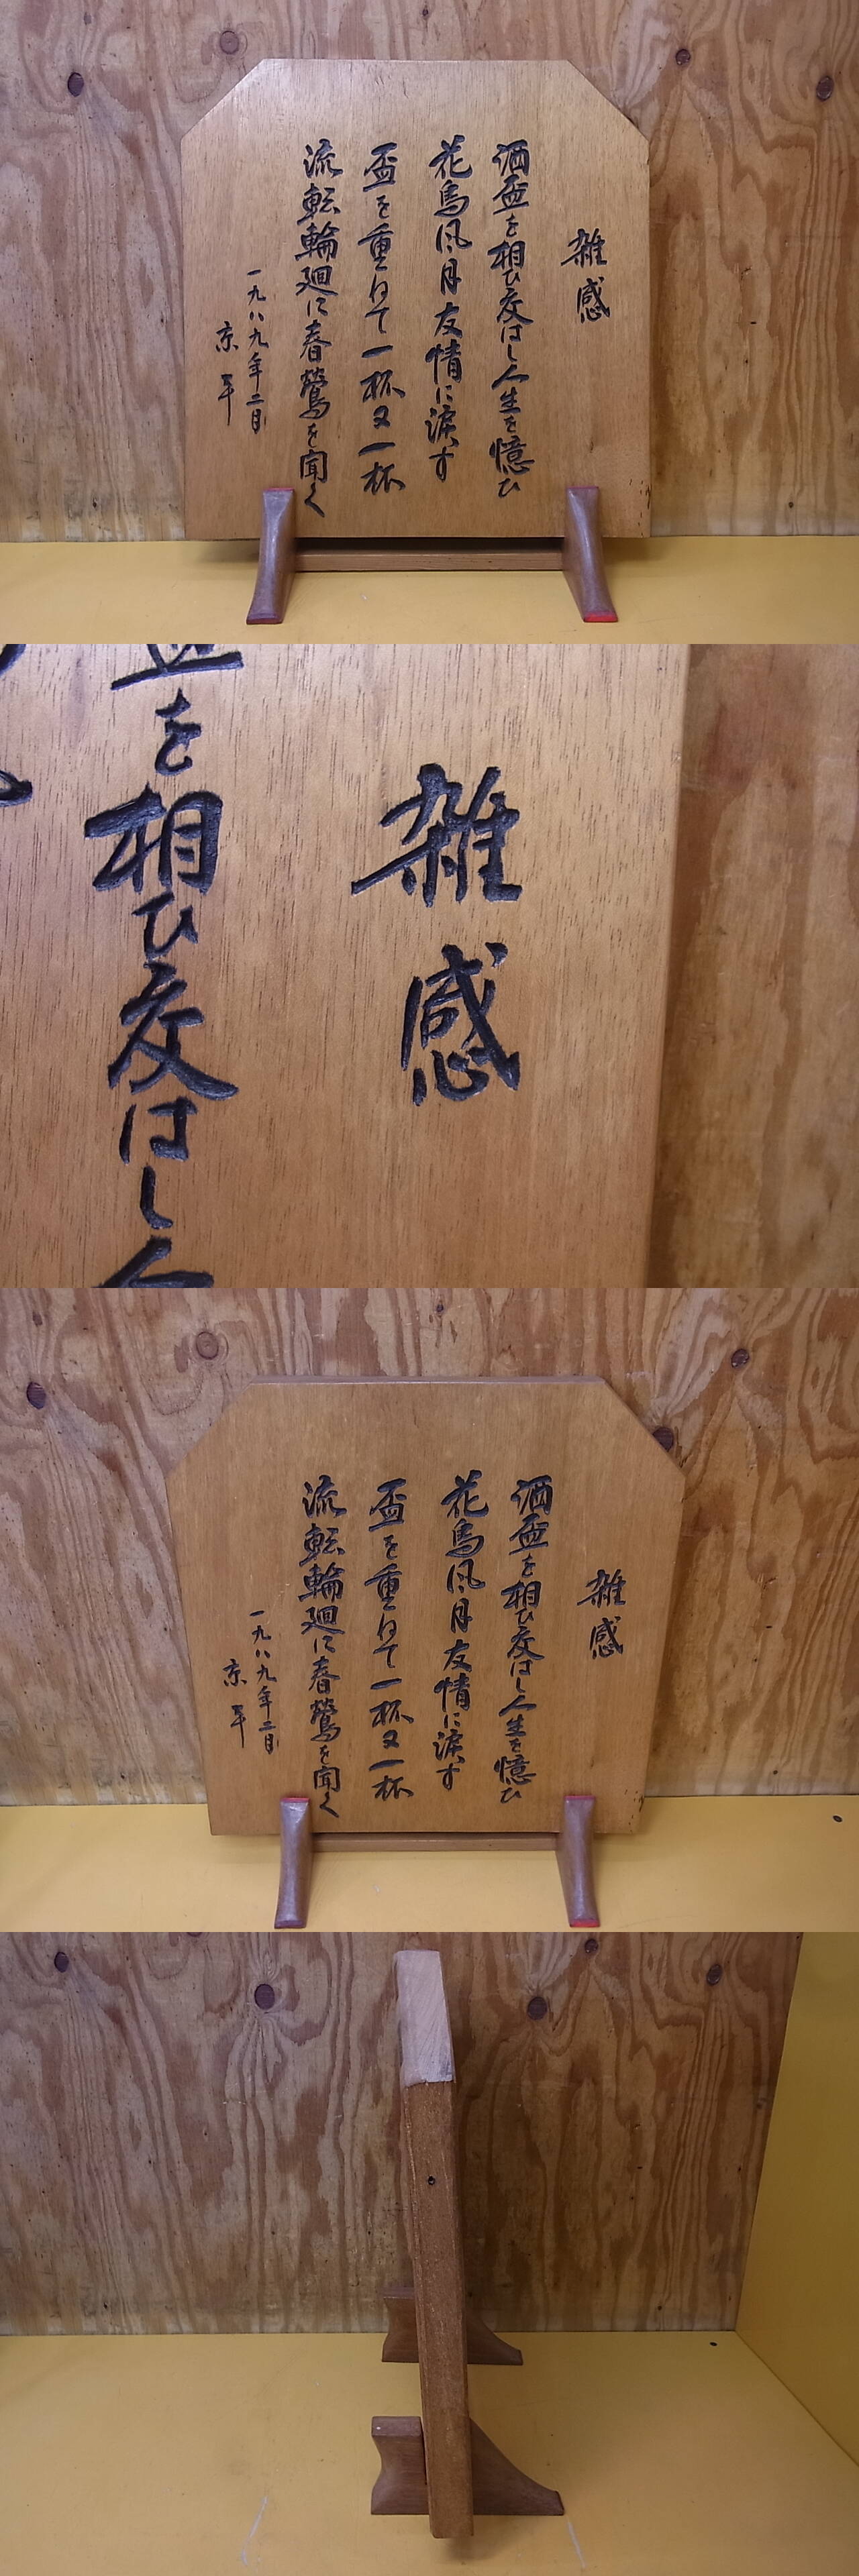 雑感
酒盃を相ひ交はし人生を憶ひ
花鳥風月友情に涙す
盃を重ねて一杯又一杯
流転輪廻に春鶯を聞く
一九八九年二月
京
を相ひ交はし
雑感
雑感
酒盃を相ひ交はし人生を憶ひ
花鳥風月友情に涙す
盃を重ねて一杯又一杯
流転輪廻に春鶯を聞く
一九八九年二月
京